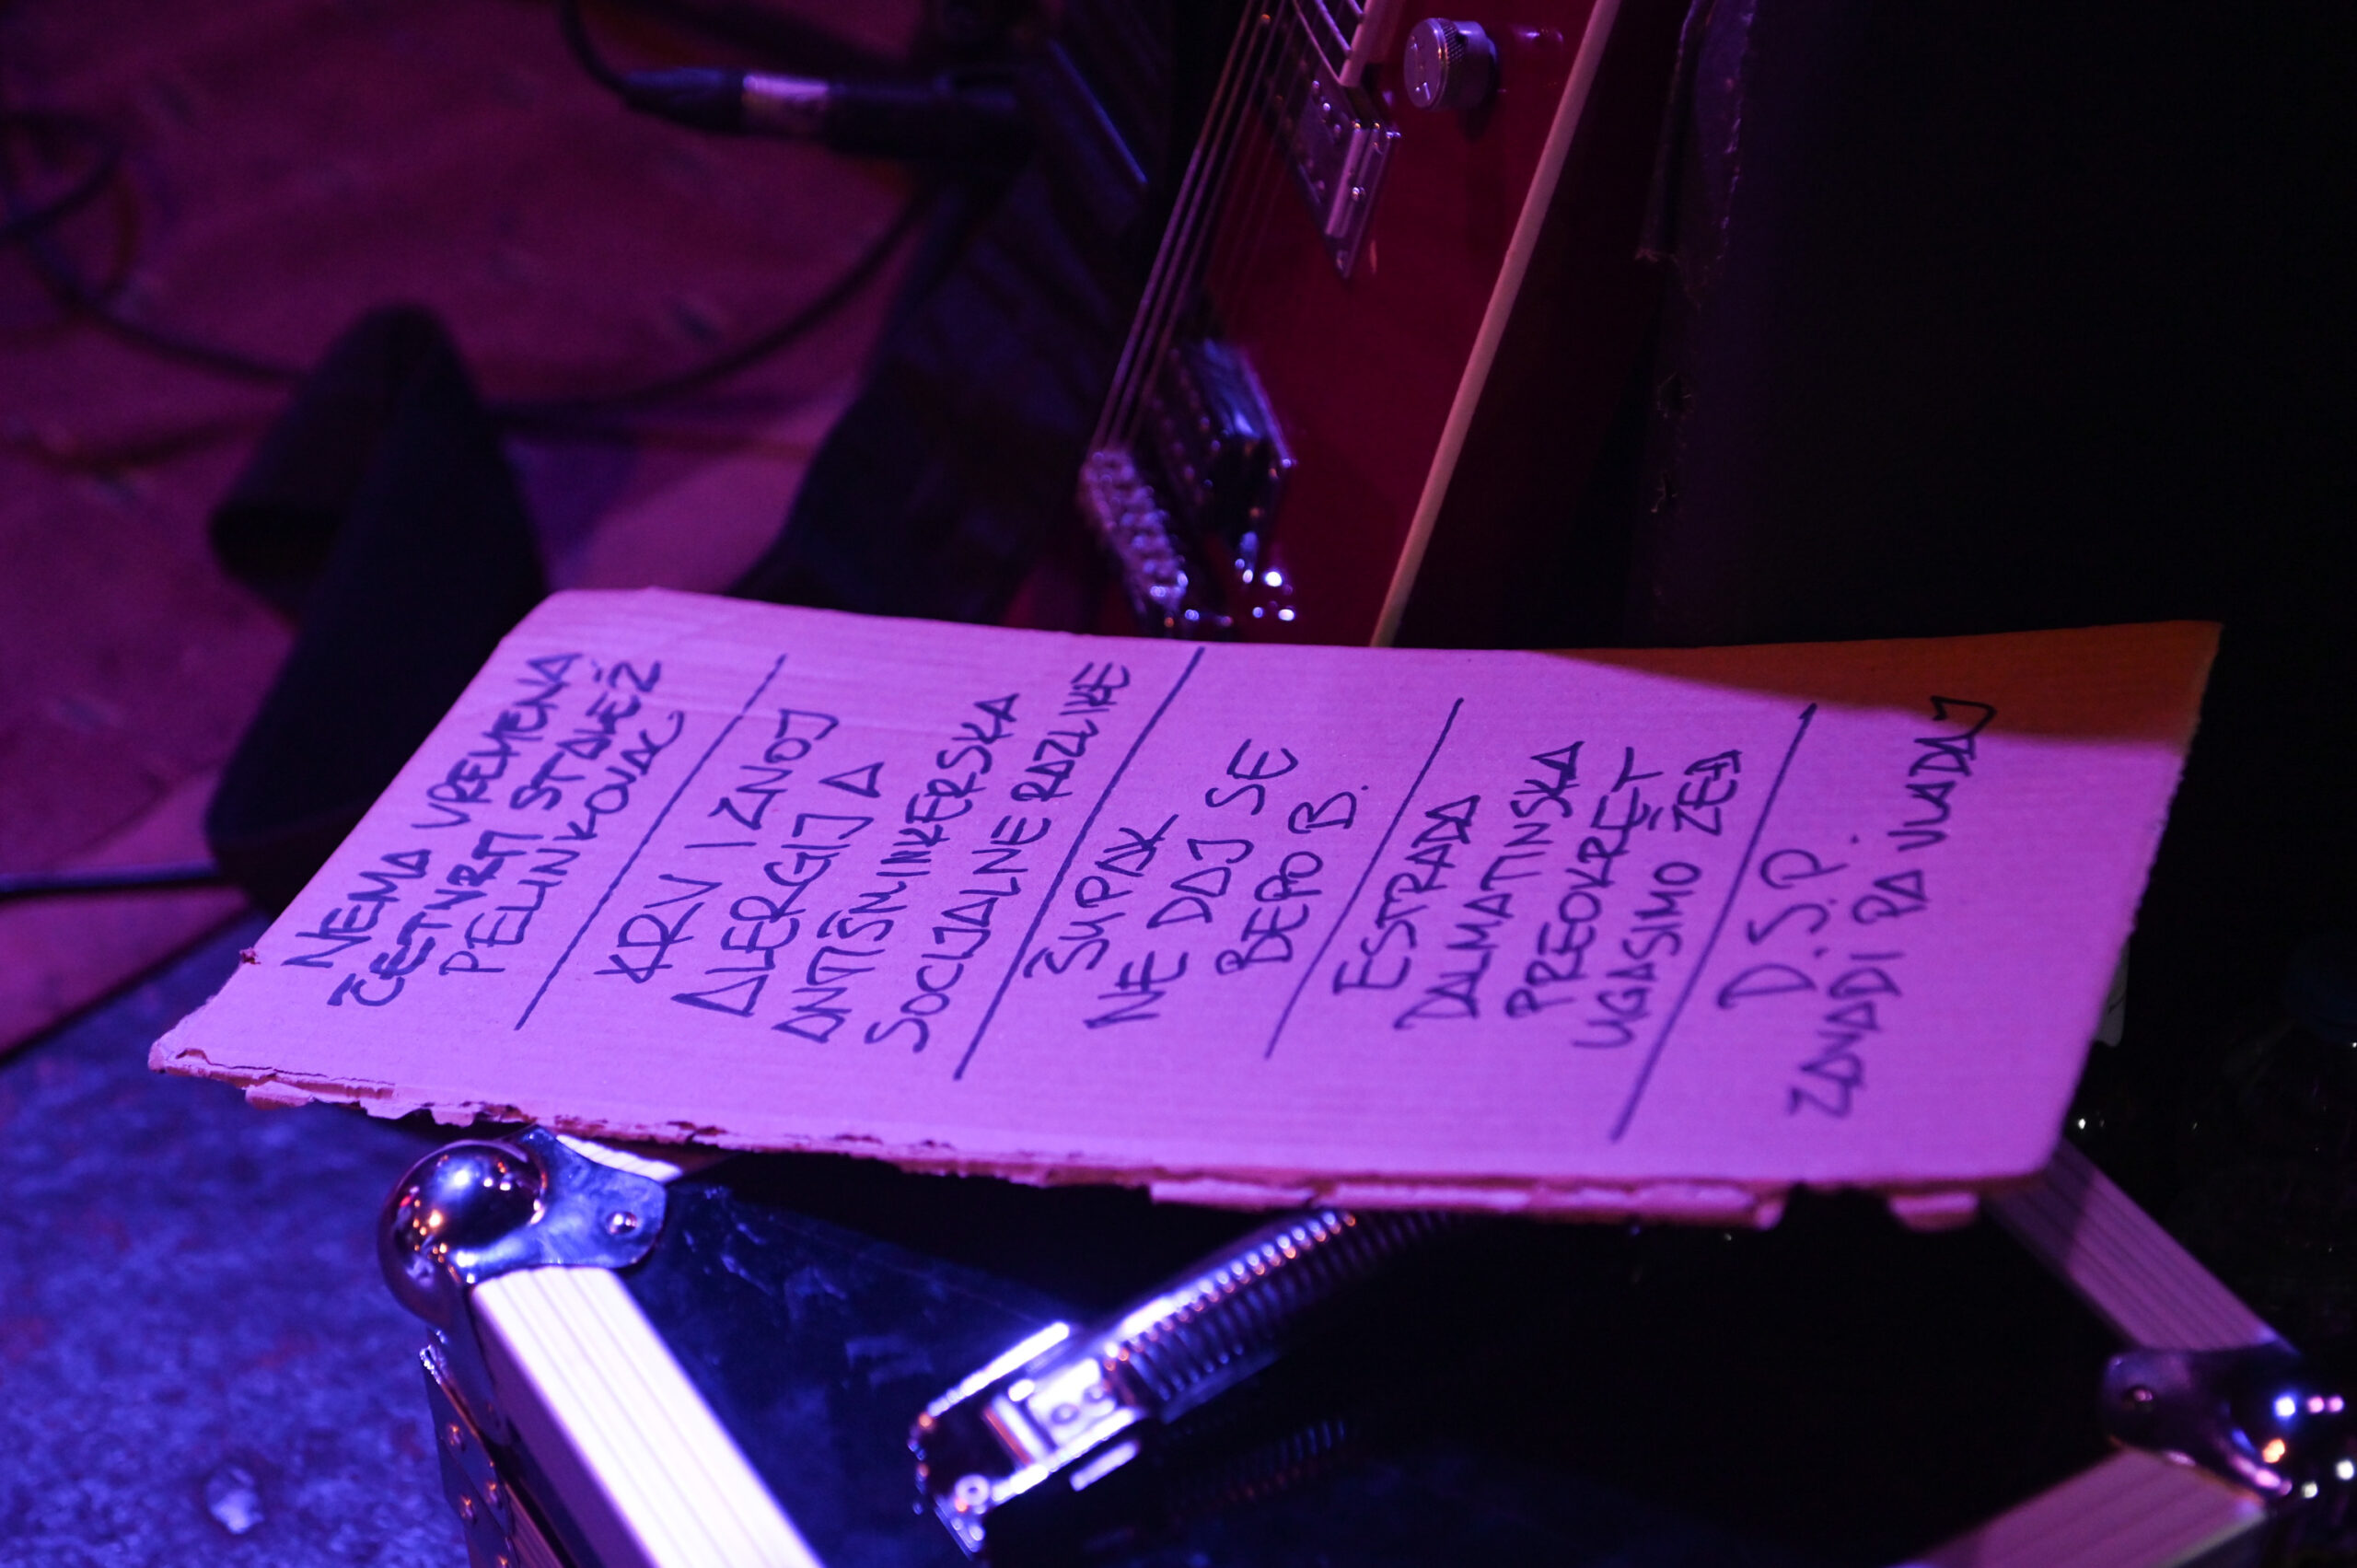 NEMA VREMENA
ČETVRTI STALEŽ
PELINKOVAC
KRV I ZNOJ
ALERGIJA
ANTIŠMINKERSKA
SOCIJALNE RAZLIKE
ŠUPAK
NE DAJ SE
BEPO B.
ESTRADA
DALMATINSKA
PREOKRET
UGASIMO ŽEĐ
D.S.P.
ZAVADI PA VLADAJ